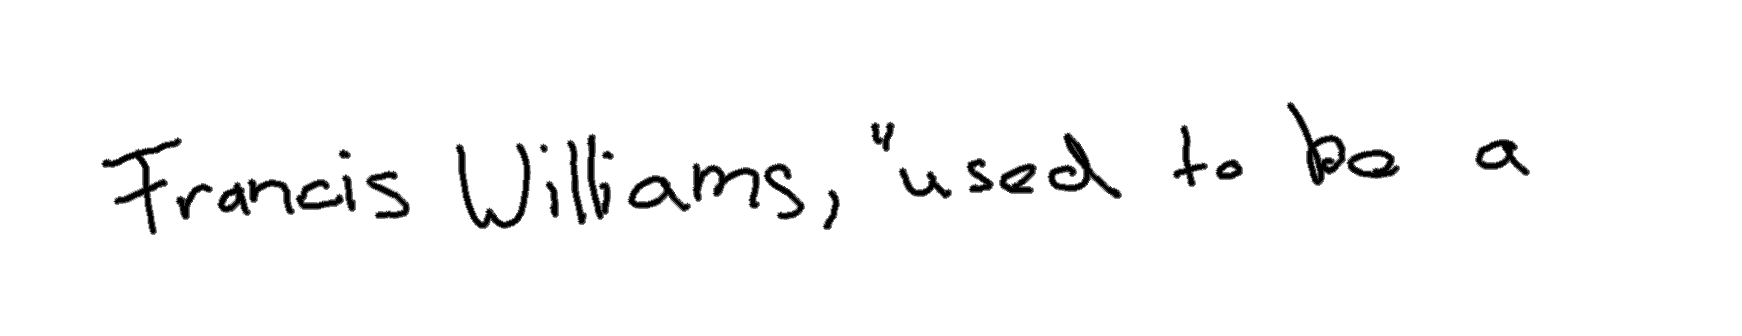 Francis Williams, "used to be a